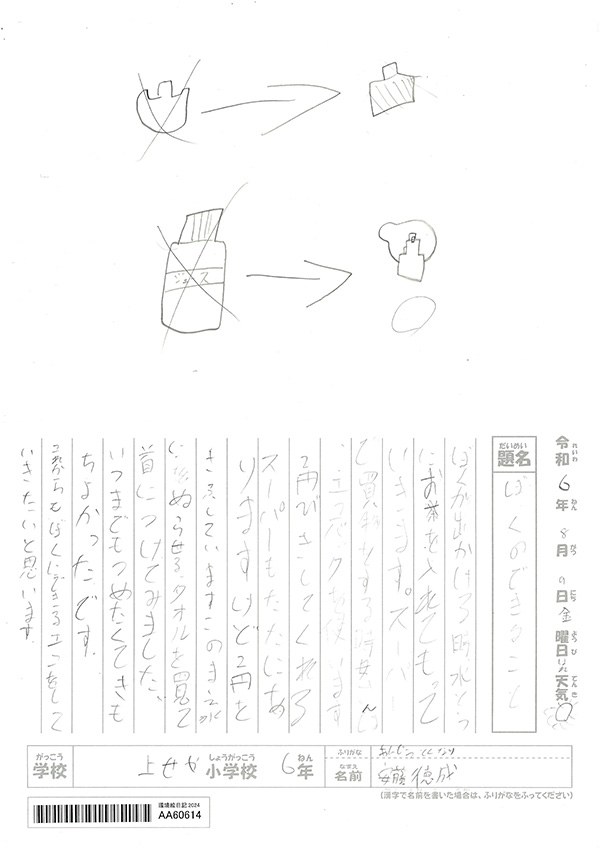 ジュース
令和6年8月9日金曜日 天気
れいわ ねん がつ にち ようび てんき
だいめい
題名
ぼくのできること
ぼくが出かける時水とう
にお茶を入れてもって
いきます。スーパー
で買物をする時母さんは
エコバックを使います
2円びきしてくれる
スーパーもたたにあ
りますけど2円を
きふしていますこのまえ水
でぬらせるタオルを買て
首につけてみました。
いつまでもつめたくてきも
ちよかったです。
これからもぼくにできるエコをして
いきたいと思います。
がっこう
学校
しょうがっこう
小学校
6年
ねん
ふりがな
なまえ
名前
安藤徳成
(漢字で名前を書いた場合は、ふりがなをふってください)
環境絵日記2024
AA60614